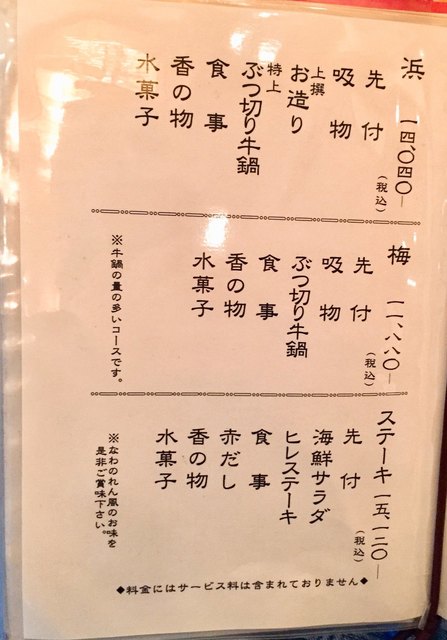 浜 一四、〇四〇—
(税込)
先付
吸物
上撰
お造り
特上
ぶつ切り牛鍋
食事
香の物
水菓子
梅 一一、八八〇—
(税込)
先付
吸物
ぶつ切り牛鍋
食事
香の物
水菓子
※牛鍋の量の多いコースです。
ステーキ 一五、一二〇—
(税込)
先付
海鮮サラダ
ヒレステーキ
食事
赤だし
香の物
水菓子
※なわのれん風のお味を
是非ご賞味下さい。
◆料金にはサービス料は含まれておりません◆